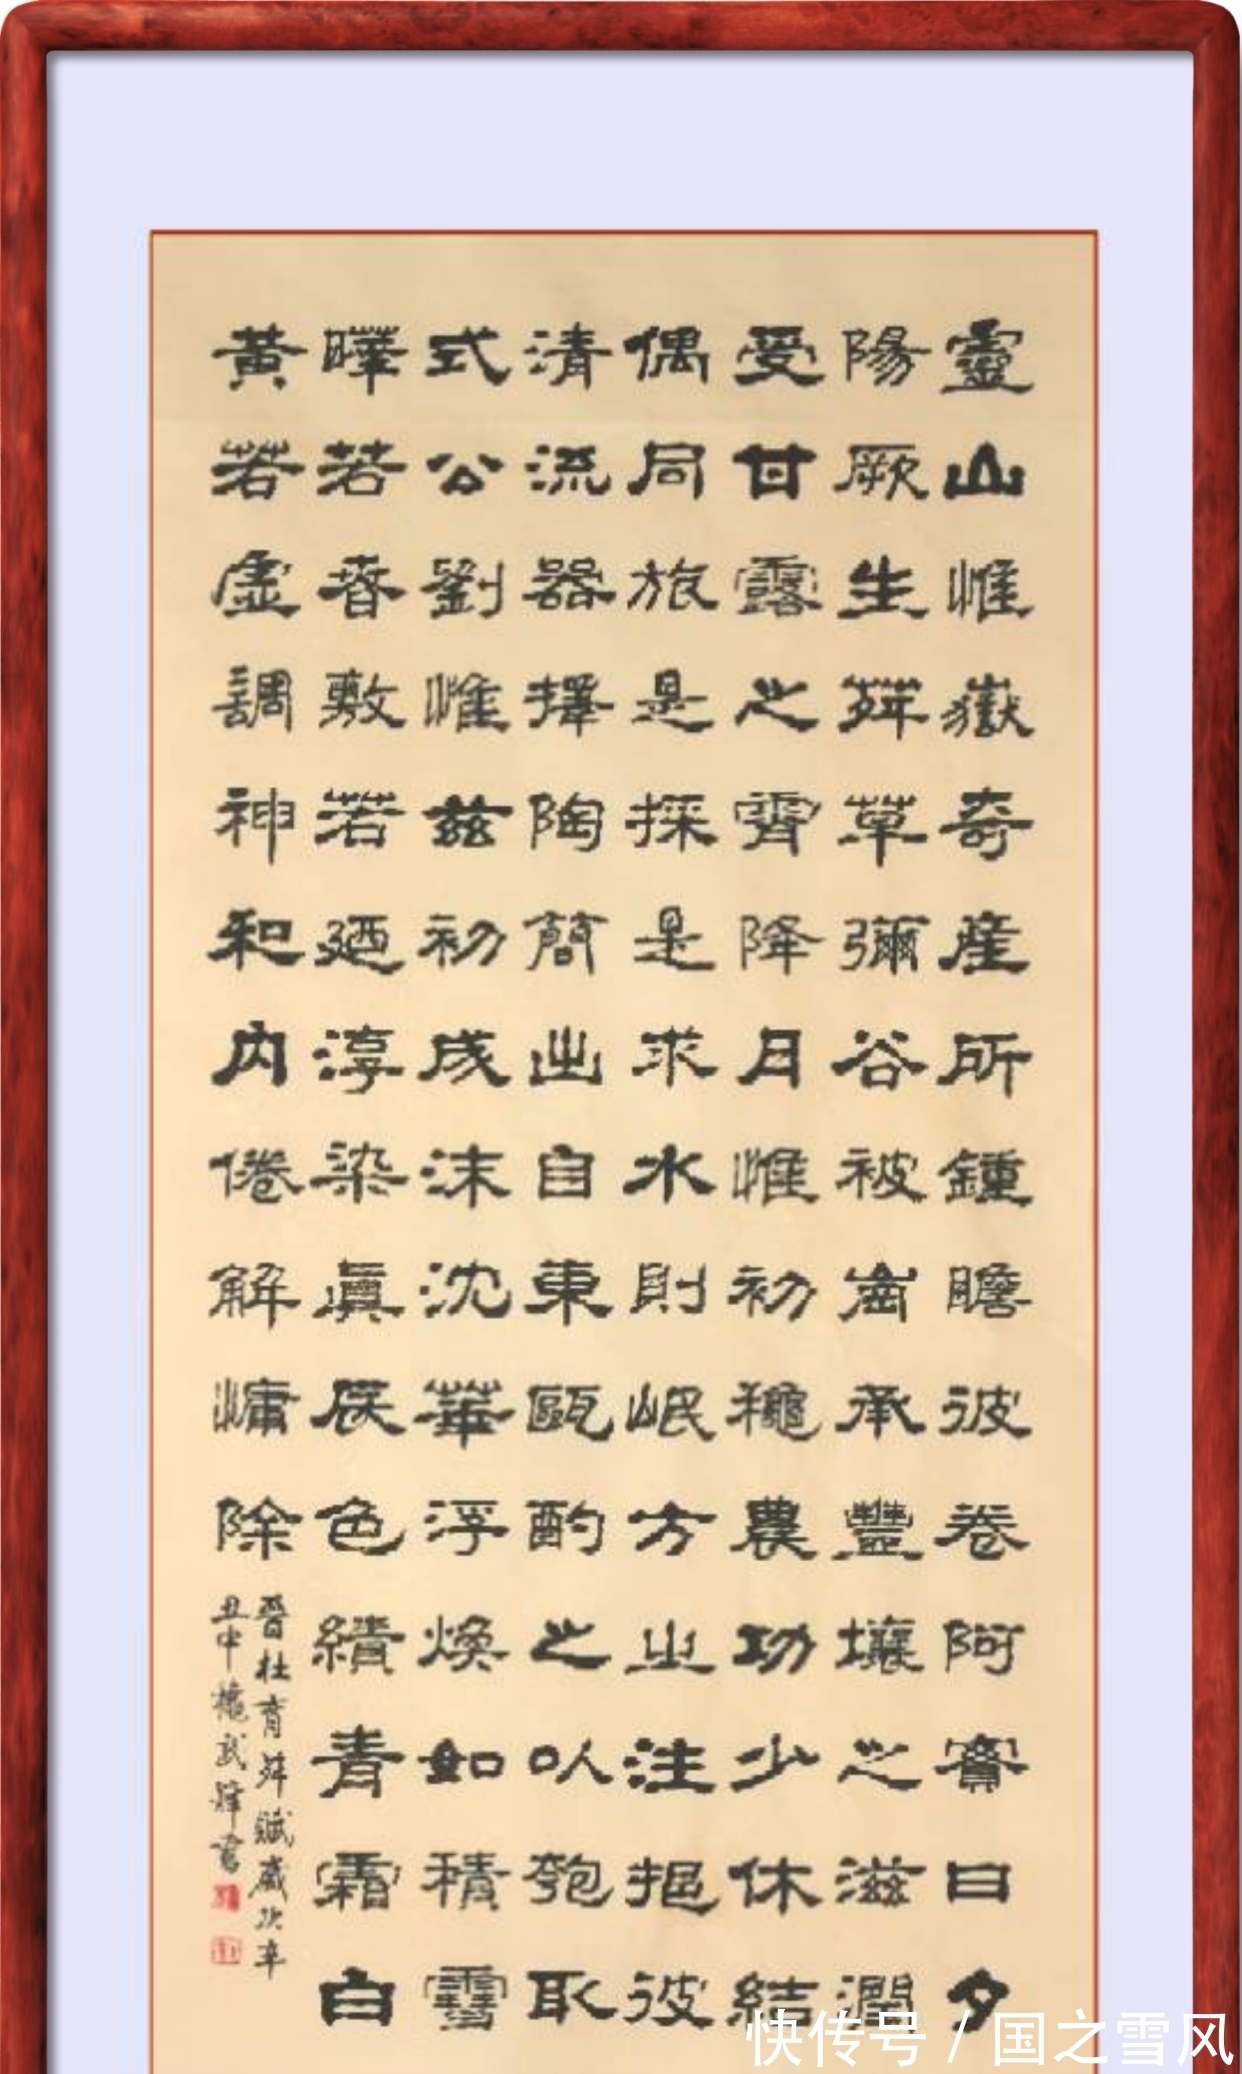 靈山惟嶽奇産所鍾瞻彼卷阿實曰夕
陽厥生荈草彌谷被崗承豐壤之滋潤
受甘露之霄降月惟初穐農功少休結
偶同旅是採是求水則岷方之注挹彼
清流器擇陶簡出自東甌酌之以匏取
式公劉惟茲初成沫沈華浮煥如積雪
曄若春敷若廼淳染眞辰色績青霜白
黃若虛調神和內倦解慵除
晉杜育荈賦歲次辛
丑中穐武書
快传号 / 国之雪风